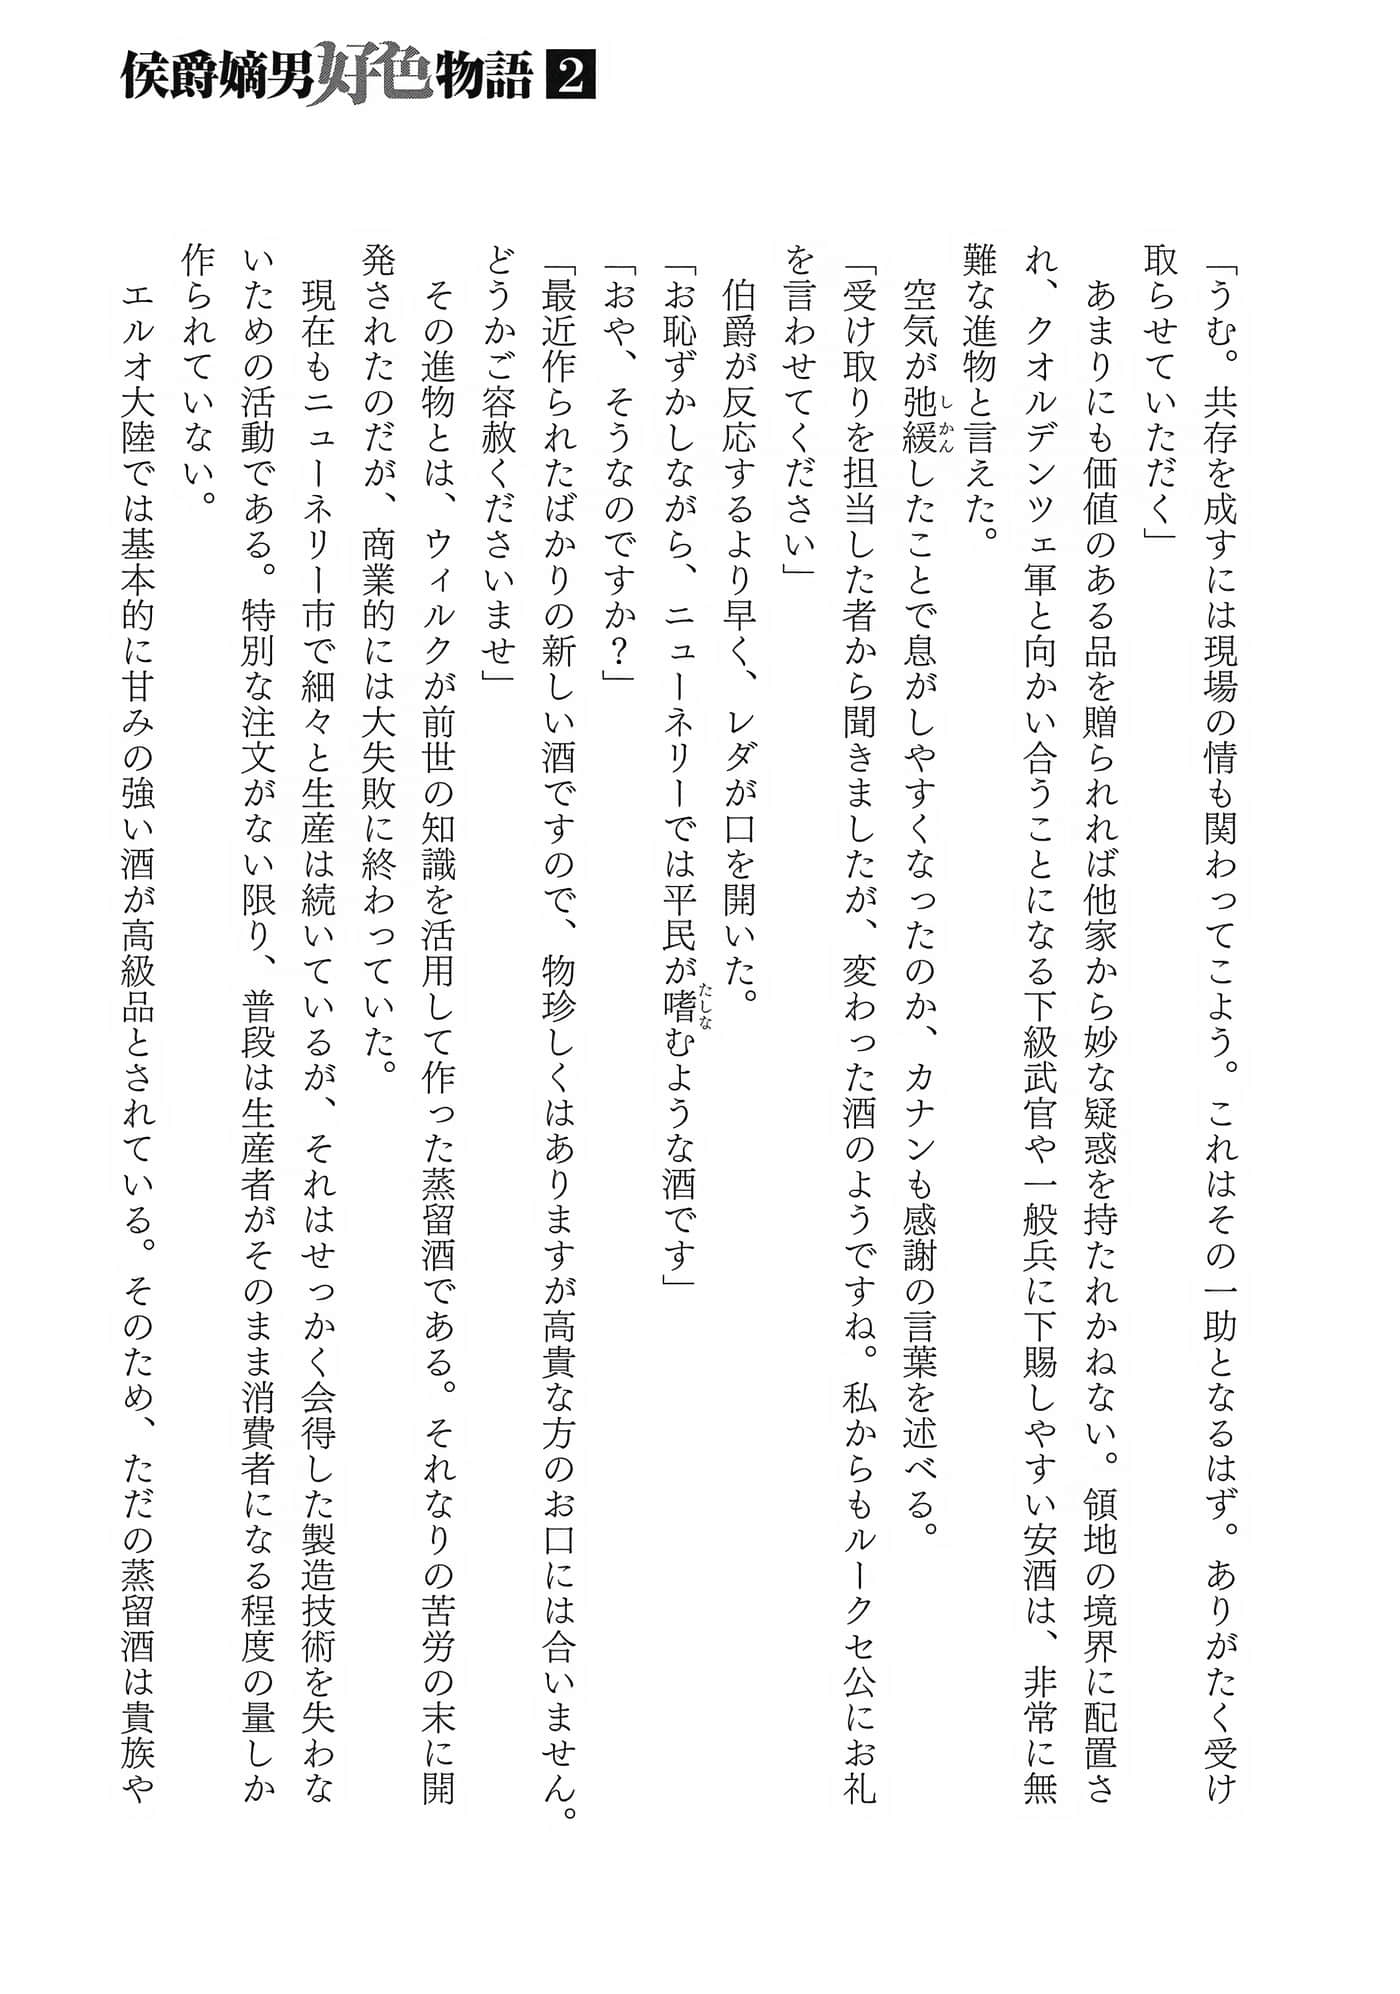 侯爵嫡男好色物語 2
「うむ。共存を成すには現場の情も関わってこよう。これはその一助となるはず。ありがたく受け
取らせていただく」
あまりにも価値のある品を贈られれば他家から妙な疑惑を持たれかねない。領地の境界に配置さ
れ、クオルデンツェ軍と向かい合うことになる下級武官や一般兵に下賜しやすい安酒は、非常に無
難な進物と言えた。
空気が弛緩したことで息がしやすくなったのか、カナンも感謝の言葉を述べる。
「受け取りを担当した者から聞きましたが、変わった酒のようですね。私からもルークセ公にお礼
を言わせてください」
伯爵が反応するより早く、レダが口を開いた。
「お恥ずかしながら、ニューネリーでは平民が嗜むような酒です」
「おや、そうなのですか？」
「最近作られたばかりの新しい酒ですので、物珍しくはありますが高貴な方のお口には合いません。
どうかご容赦くださいませ」
その進物とは、ウィルクが前世の知識を活用して作った蒸留酒である。それなりの苦労の末に開
発されたのだが、商業的には大失敗に終わっていた。
現在もニューネリー市で細々と生産は続いているが、それはせっかく会得した製造技術を失わな
いための活動である。特別な注文がない限り、普段は生産者がそのまま消費者になる程度の量しか
作られていない。
エルオ大陸では基本的に甘みの強い酒が高級品とされている。そのため、ただの蒸留酒は貴族や